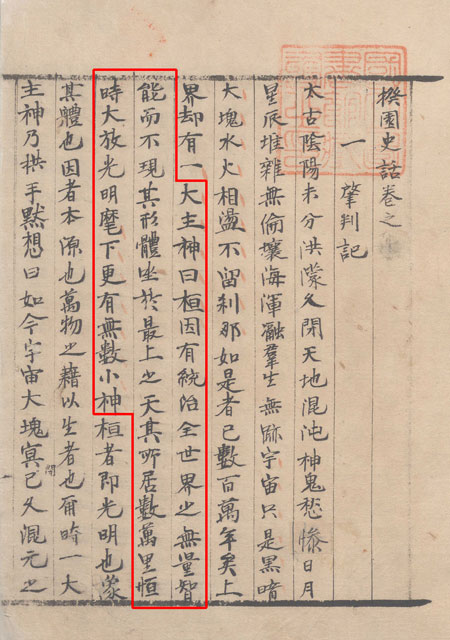 揆園史話卷之
一 肇判記
太古陰陽未分洪濛久閉天地混沌神鬼愁慘日月
星辰堆雜無倫壤海渾瀜羣生無跡宇宙只是黑暗
大塊水火相盪不留刹那如是者已數百萬年矣上
界却有一大主神曰桓因有統治全世界之無量智
能而不現其形體坐於最上之天其所居數萬里恒
時大放光明麾下更有無數小神桓者即光明也象
其體也因者本源也萬物之藉以生者也爾時一大
主神乃拱手默想曰如今宇宙大塊冥閉已久混元之